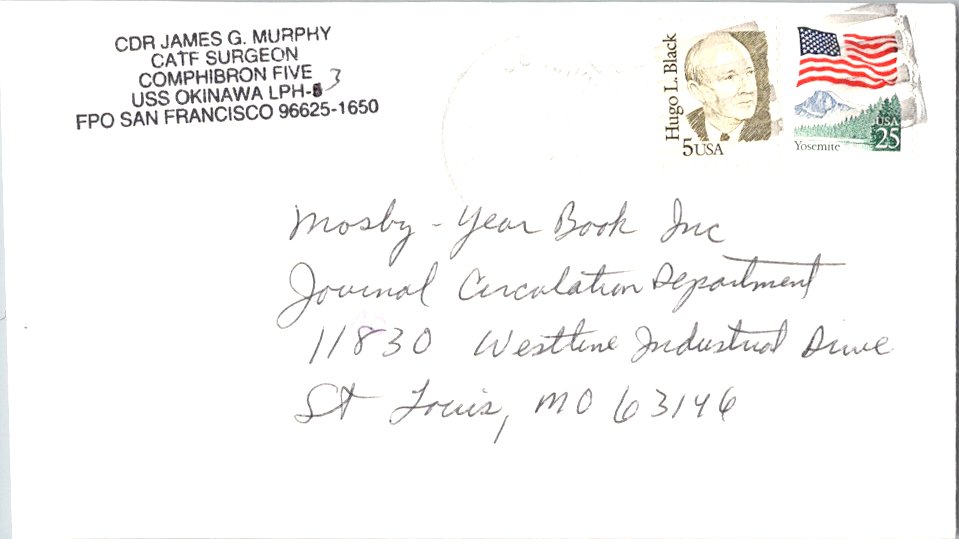 CDR JAMES G. MURPHY
CATF SURGEON
COMPHIBRON FIVE
USS OKINAWA LPH-3
FPO SAN FRANCISCO 96625-1650
Hugo L. Black
5 USA
USA
Yosemite 25
Mosby-Year Book Inc
Journal Circulation Department
11830 Westline Industrial Drive
St Louis, MO 63146